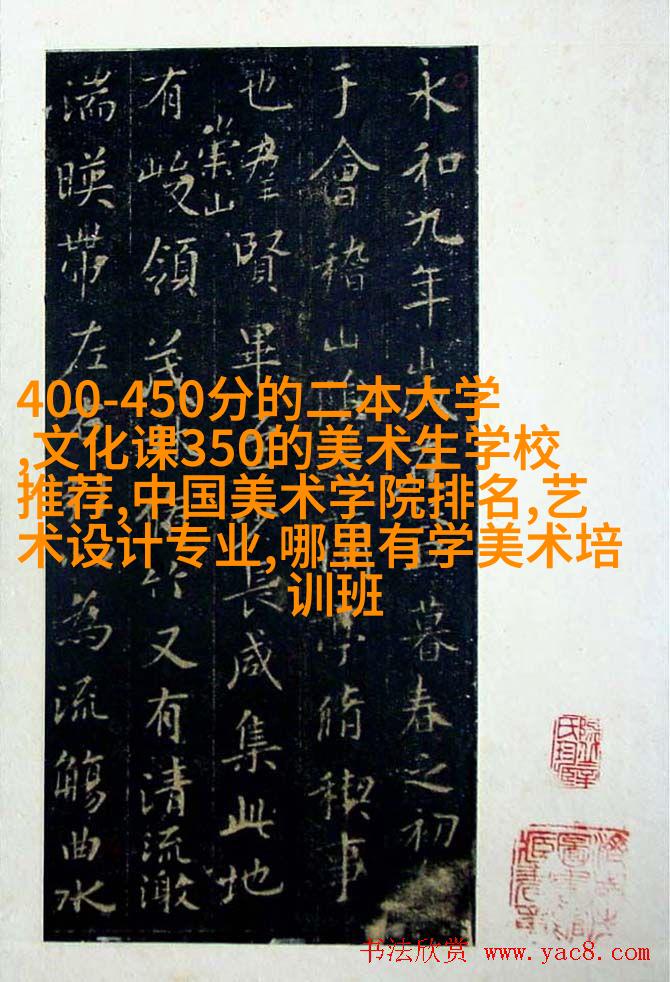 永和九年暮春之初
于會稽山脩稧事
也羣賢畢長咸集此地
有崇山峻領茂竹又有清流激
湍暎帶左為流觴曲水
400-450分的二本大学
,文化课350的美术生学校
推荐,中国美术学院排名,艺
术设计专业,哪里有学美术培
训班
书法欣赏 www.yac8.com